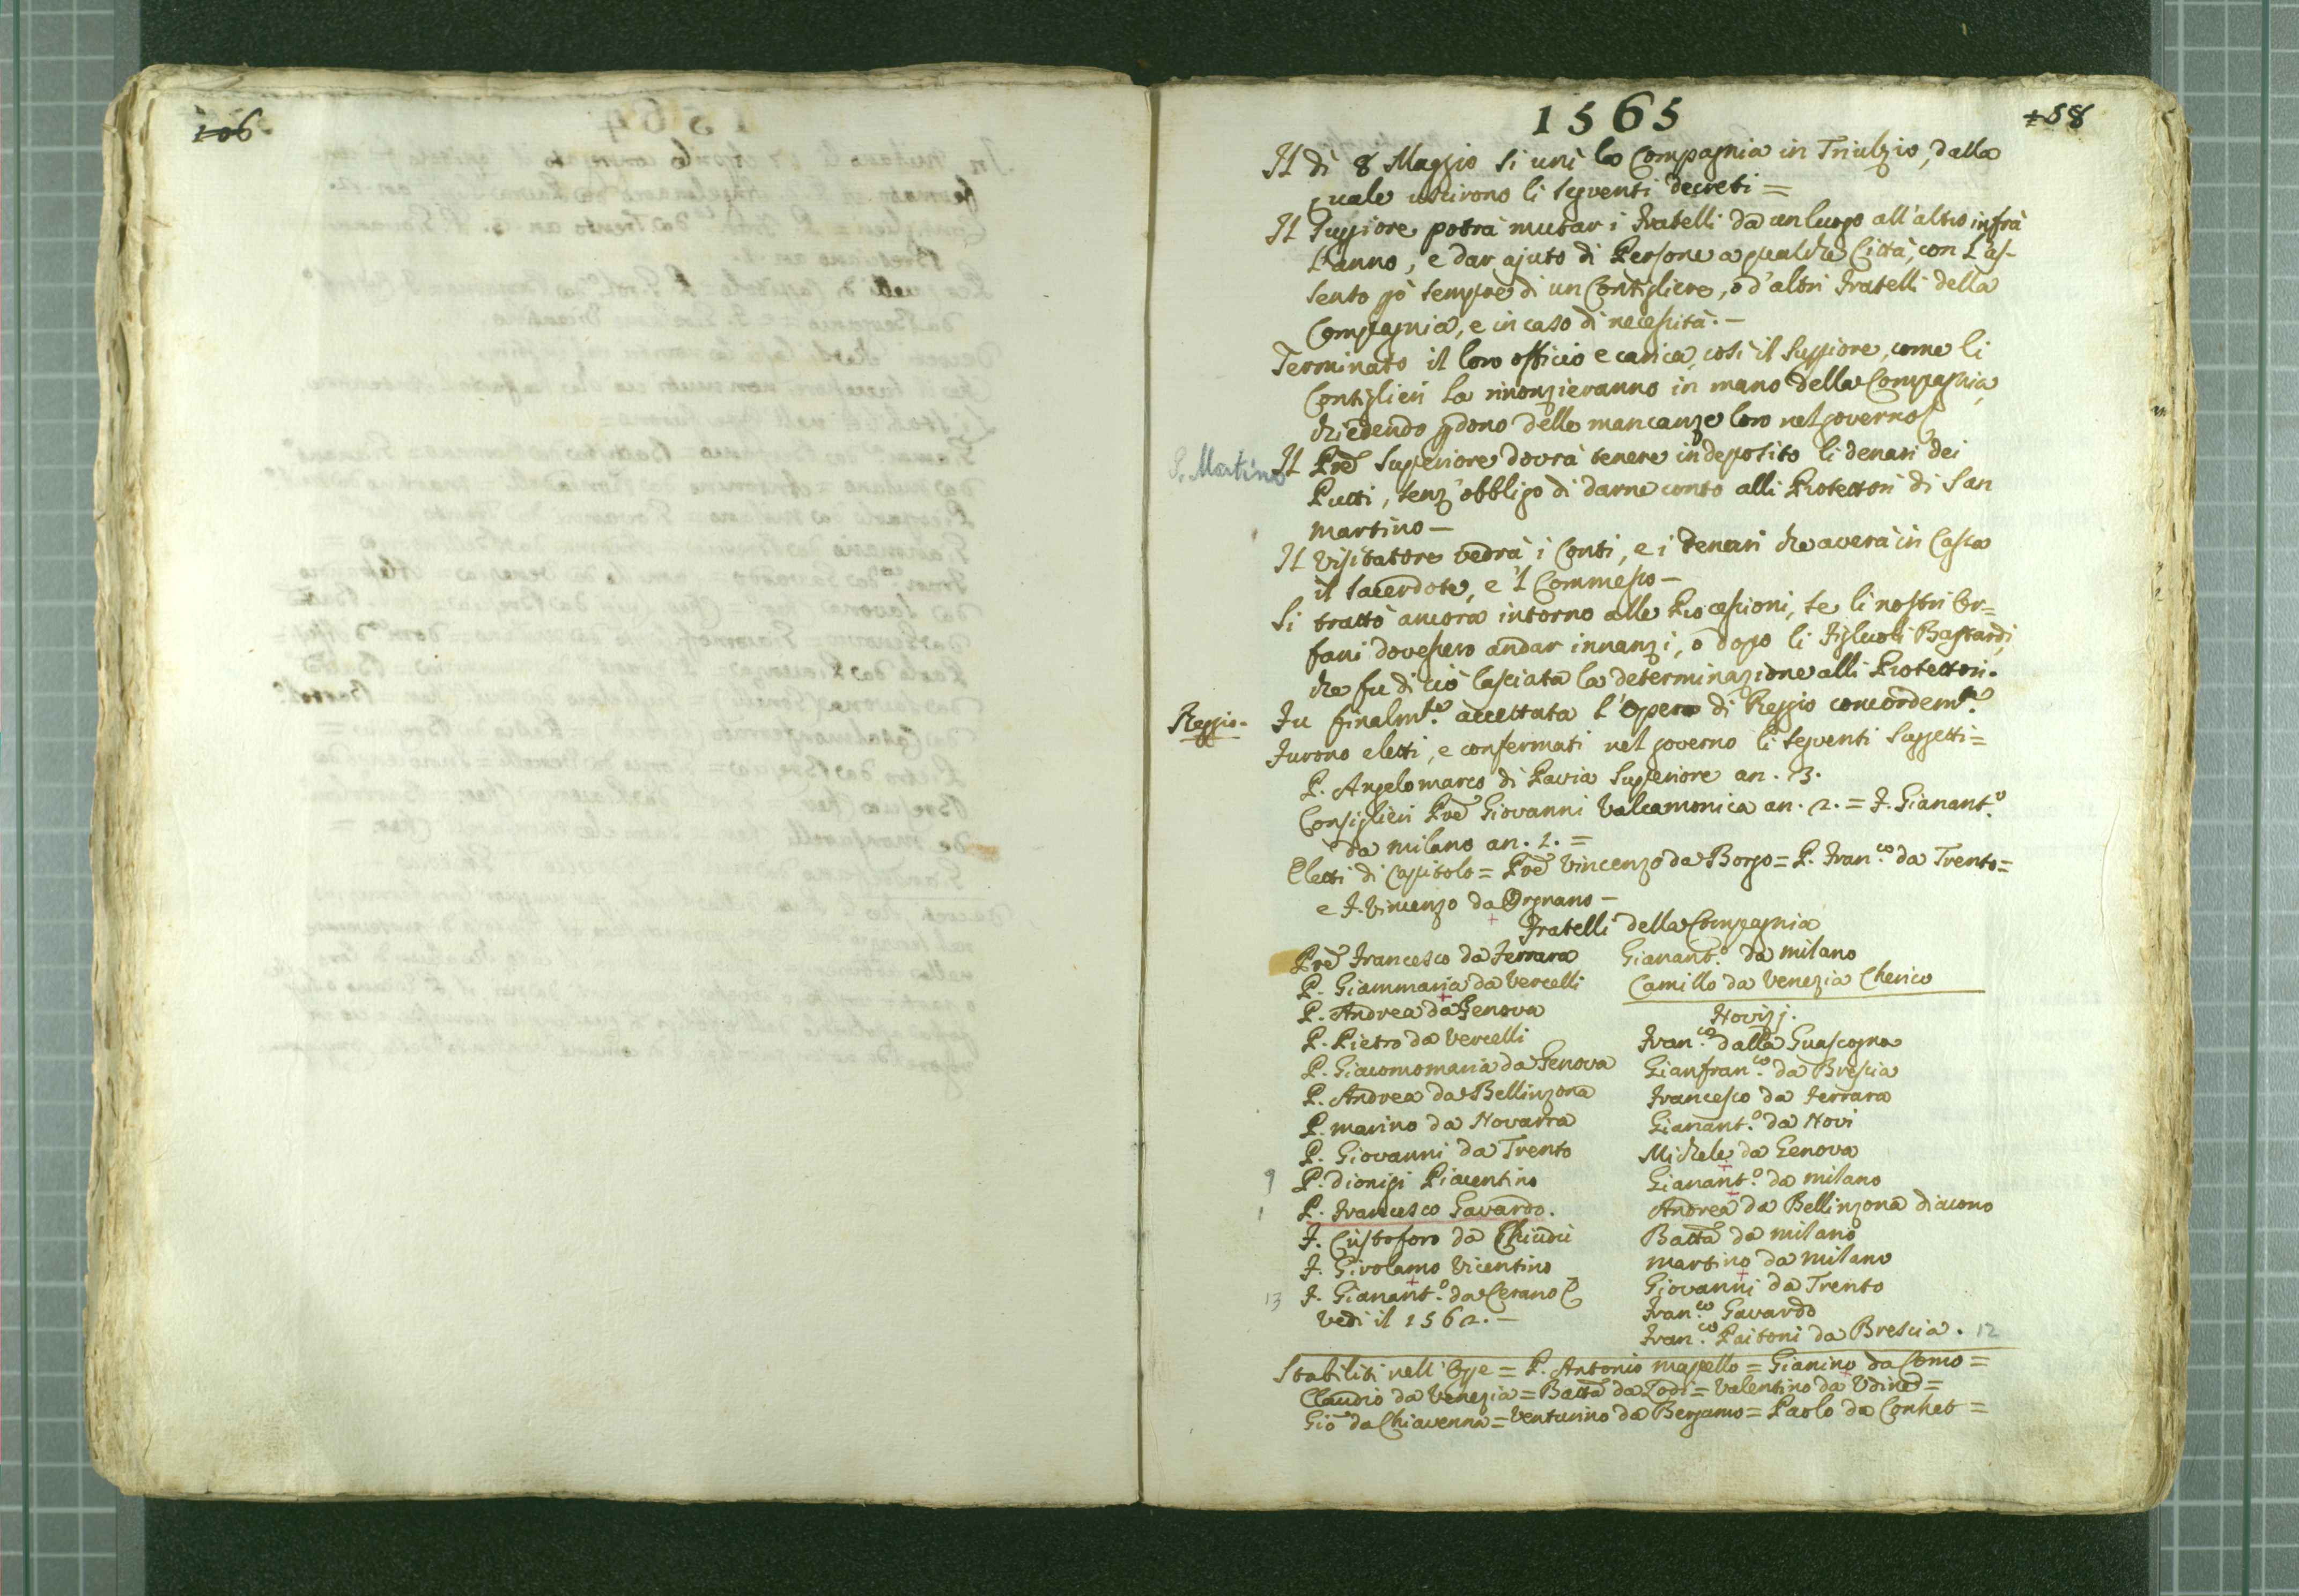 106
1565
158
Il dì 8 Maggio si unì la Compagnia in Triulzio, dalla
quale uscirono li seguenti decreti =
Il Suppiore potrà mutar i Fratelli da un luogo all'altro infrà
l'anno, e dar ajuto di Persone a qualche Città, con l'as-
senso pò sempre di un Consigliere, o d'altri Fratelli della
Compagnia, e in caso di necessità. —
Terminato il loro officio e carica, così il Suppiore, come li
Consiglieri la rinonzieranno in mano della Compagnia,
chiedendo pdono delle mancanze loro nel governo
S. Martino
Il Prē Superiore dovrà tenere in deposito li denari dei
Putti, senz'obbligo di darne conto alli Protettori di San
Martino —
Il Visitatore vedrà i Conti, e i denari che averà in Cassa
il Sacerdote, e 'l Commesso —
Si trattò ancora intorno alle Processioni, se li nostri Or=
fani dovessero andar innanzi, ò dopo li Figluoli Bastardi,
che fu di ciò lasciata la determinazione alli Protettori.
Reggio.
Fu finalmte. accettata l'Opera di Reggio concordemte.
Furono eletti, e confermati nel governo li seguenti Suggetti =
P. Angelomarco di Pavia Superiore an. 3.
Consiglieri Prē Giovanni Valcamonica an. 2. = F. Gianant.o
da Milano an. 1. =
Eletti di Capitolo = Prē Vincenzo da Borgo = P. Fran.co da Trento =
e F. Vincenzo da Orgnano —
Fratelli della Compagnia
Prē Francesco da Ferrara
P. Giammaria da Vercelli
P. Andrea da Genova
P. Pietro da Vercelli
P. Giacomomaria da Genova
P. Andrea da Bellinzona
P. Marino da Novarra
P. Giovanni da Trento
9 P. Dionigi Piacentino
1 P. Francesco Gavardo.
F. Cristoforo da Chiudù
F. Girolamo Vicentino
13 F. Gianant.o da Cerano C
Vedi il 1562. —
Gianant.o da Milano
Camillo da Venezia Cherico
Novizj.
Fran.co dalla Guascogna
Gianfran.co da Brescia
Francesco da Ferrara
Gianant.o da Novi
Michele da Genova
Gianant.o da Milano
Andrea da Bellinzona Diacono
Battā da Milano
Martino da Milano
Giovanni da Trento
Fran.co Gavardo
Fran.co Paitoni da Brescia. 12
Stabiliti nell'Ope = P. Antonio Masello = Gianino da Como =
Claudio da Venezia = Battā da Lodi = Valentino da Udine =
Giō da Chiavenna = Venturino da Bergamo = Paolo da Conhet =